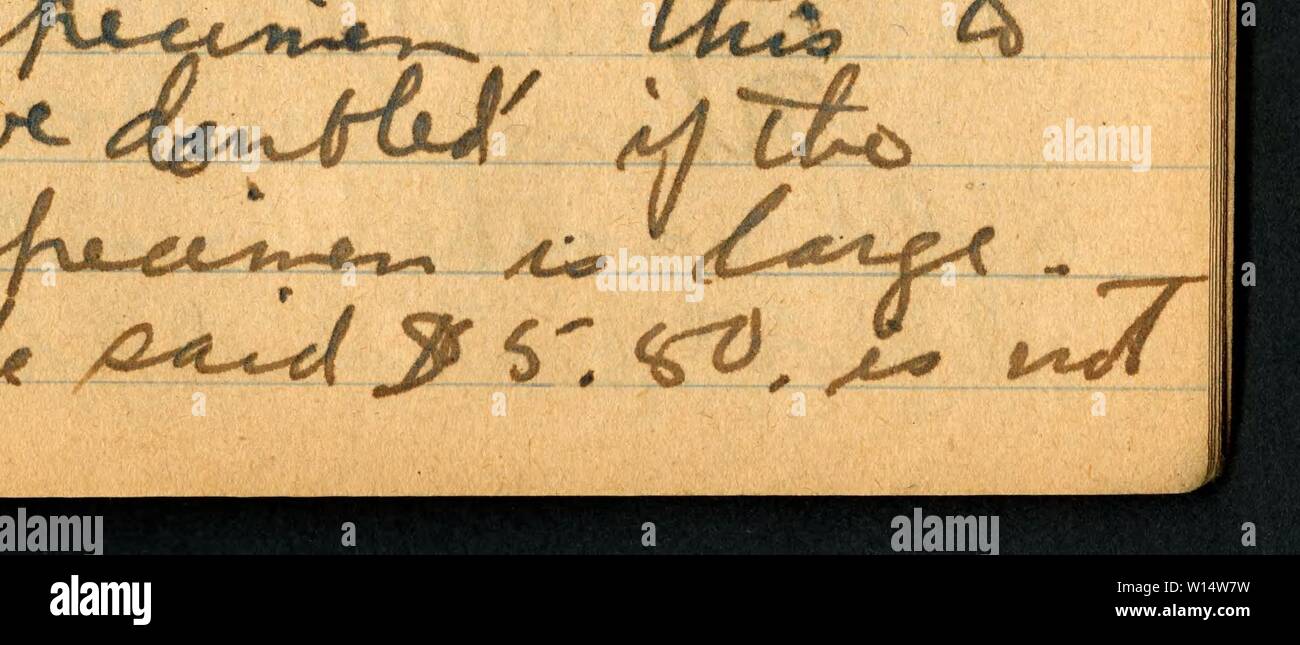 specimen this to
be doubled if the
specimen is large.
said $5.80. is not
alamy
Image ID: W14W7W
www.alamy.com